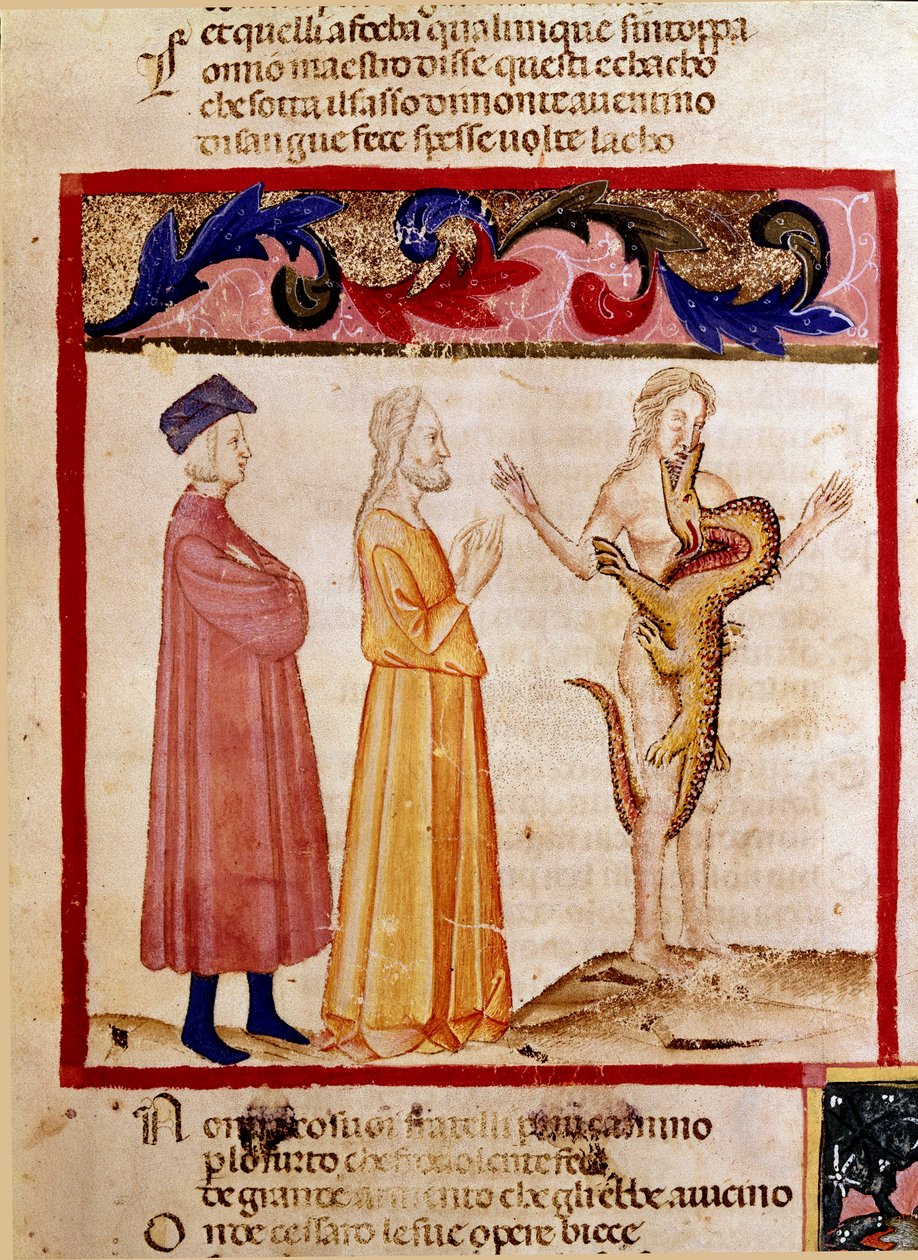 et quelli afocha qualunque sintoppa
L omio maestro disse questi e chacho
che sotta il sasso di monte auentino
di sangue fece spesse uolte lacho
N on co suoi fratelli camino
plo furto che frodolente fece
de grande armento che gli ebbe auicino
O nde cessaro le sue opere biece